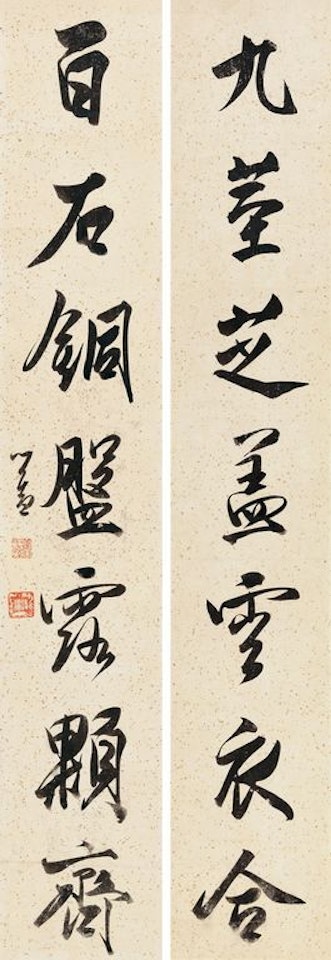 九莖芝蓋雲衣合
百石銅盤露顆齊
心畬